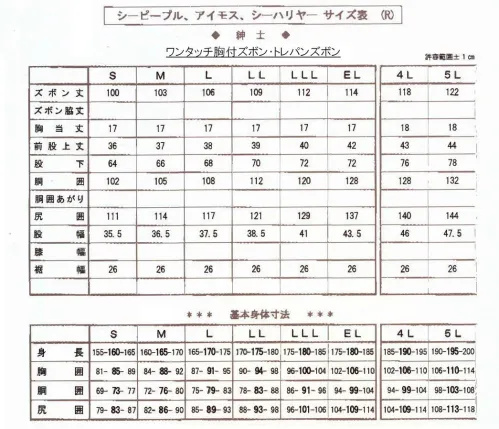 シーピープル、アイモス、シーハリヤー サイズ表 (R)
◆ 紳士 ◆
ワンタッチ胸付ズボン・トレパンズボン
許容範囲±1㎝
S M L LL LLL EL 4L 5L
ズボン丈 100 103 106 109 112 114 118 122
ズボン脇丈
胸当丈 17 17 17 17 17 17 18 18
前股上丈 36 37 38 39 40 42 43 44
股下 64 66 68 70 72 72 76 78
胴囲 102 105 108 112 120 128 128 132
胴囲あがり
尻囲 111 114 117 121 129 137 140 144
股幅 35.5 36.5 37.5 38.5 41 43.5 46 47.5
膝幅
裾幅 26 26 26 26 26 26 26 26
*** 基本身体寸法 ***
S M L LL LLL EL 4L 5L
身長 155-160-165 160-165-170 165-170-175 170-175-180 175-180-185 175-180-185 185-190-195 190-195-200
胸囲 81-85-89 84-88-92 87-91-95 90-94-98 96-100-104 102-106-110 102-106-110 106-110-114
胴囲 69-73-77 72-76-80 75-79-83 78-83-88 86-91-96 94-99-104 94-99-104 98-103-108
尻囲 79-83-87 82-86-90 85-89-93 88-93-98 96-101-106 104-109-114 104-109-114 108-113-118